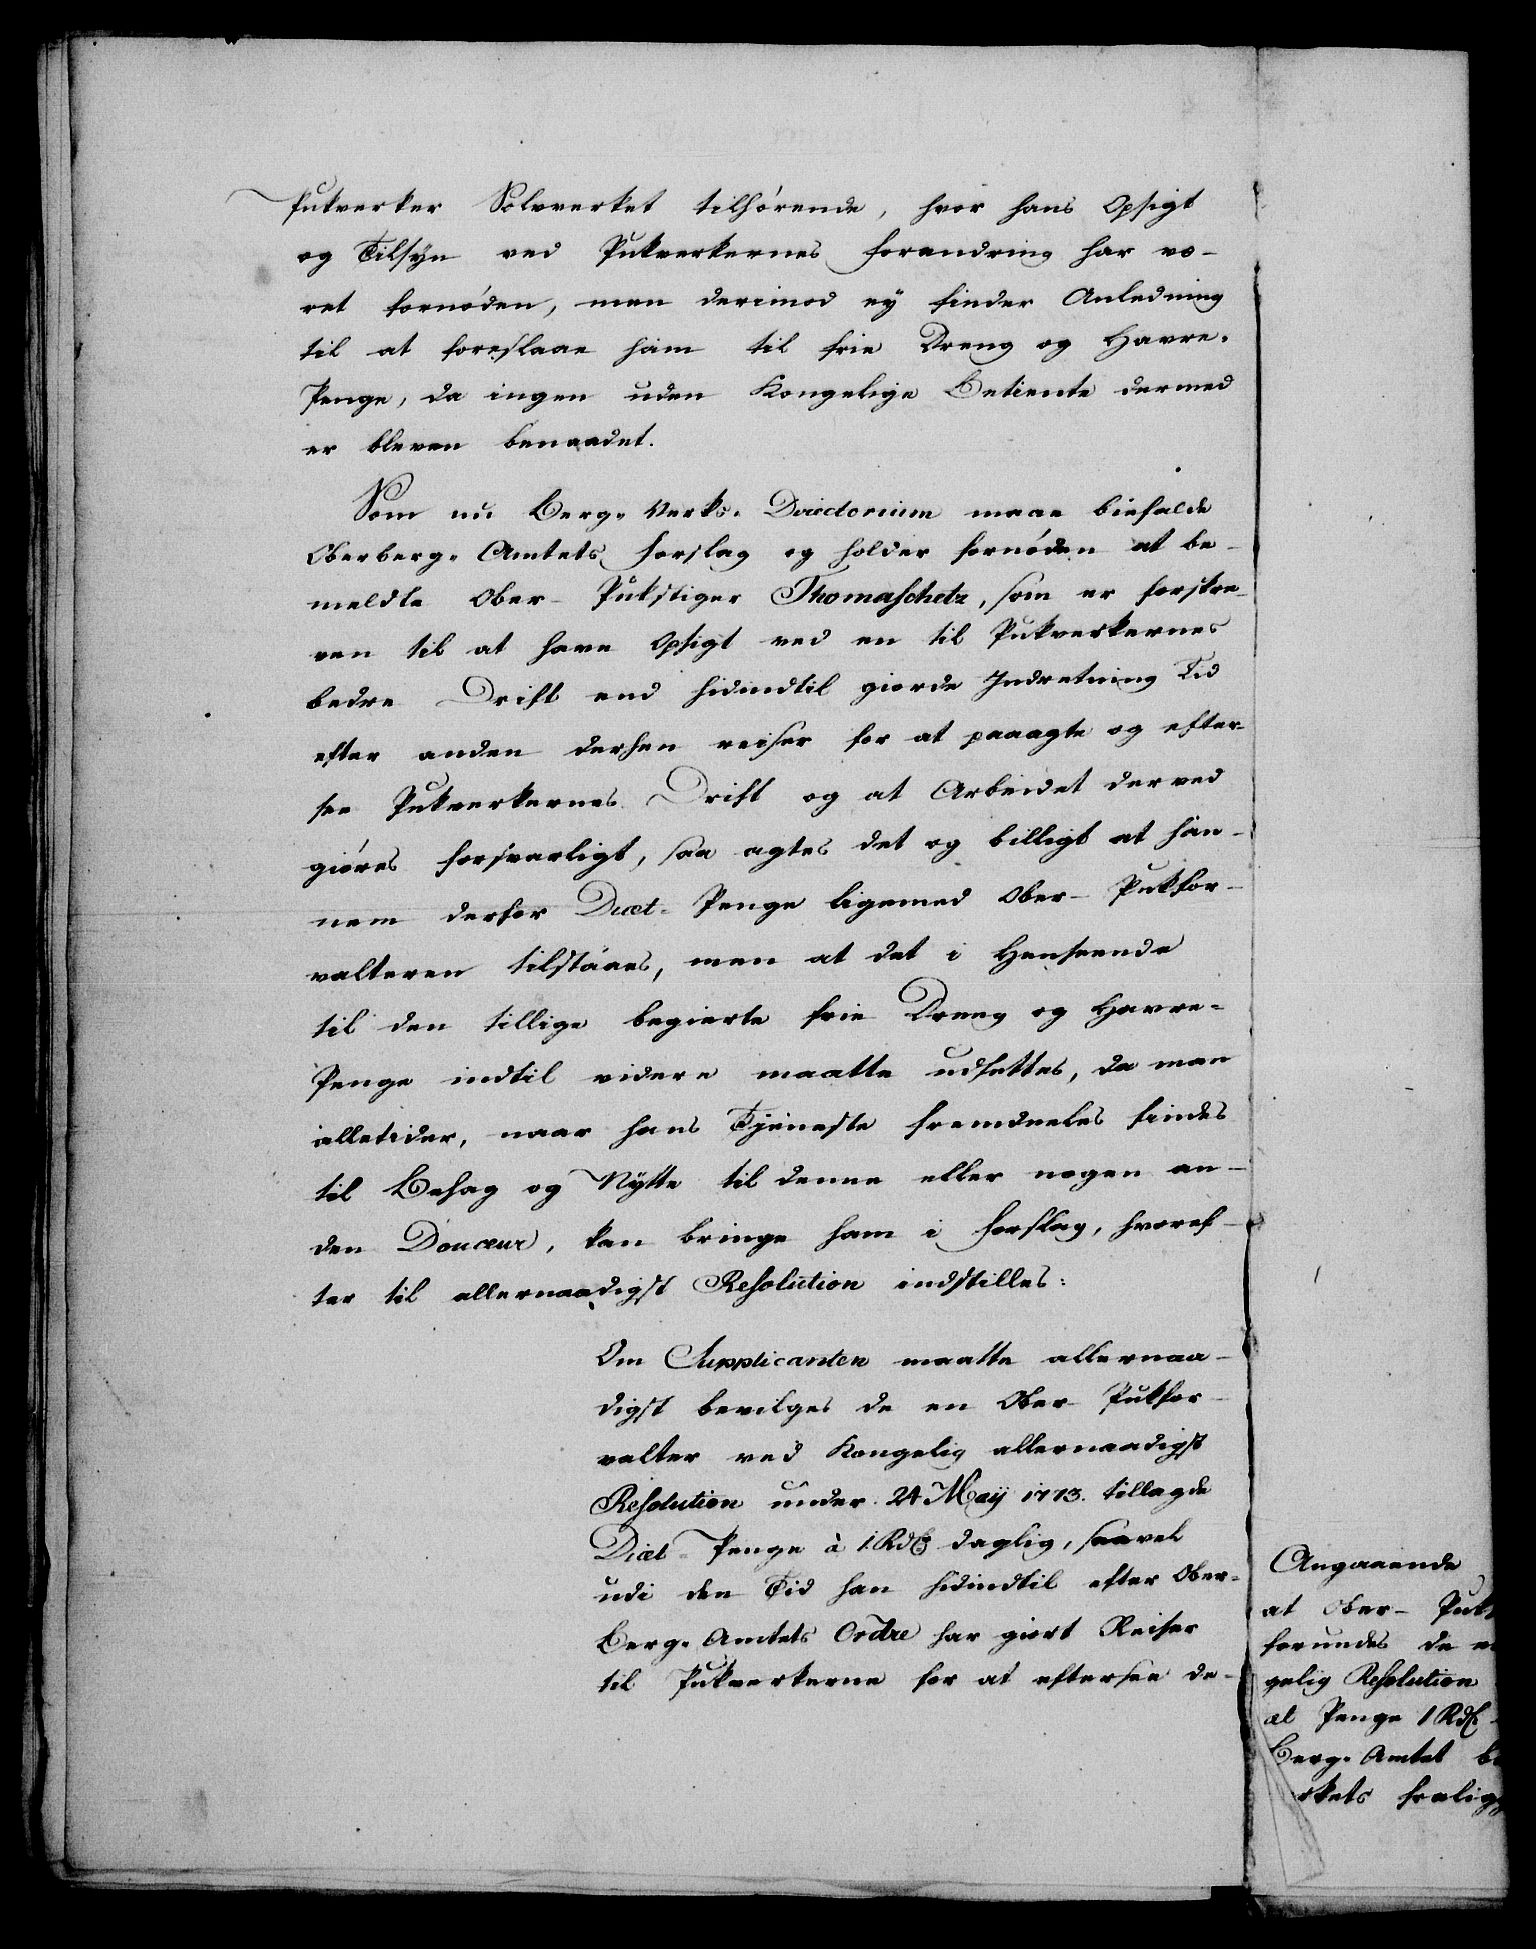 Pukverker Sølvverket tilhørende, hvor hans Opsigt
og Tilsyn ved Pukverkernes forandring har væ-
ret fornøden, men derimod ey finder Anledning
til at foreslaae ham til frie Dreng og Havre-
Penge, da ingen uden Kongelige Betiente dermed
er bleven benaadet.
Som nu Berg-Verks-Directorium maae biefalde
Oberberg-Amtets forslag og holder fornøden at be-
meldte Ober-Pukstiger Thomaschetz, som er forskre-
ven til at have Opsigt ved en til Pukverkernes
bedre Drift end hidindtil giorde Indretning Tid
efter anden derhen reiser for at paaagte og efter-
see Pukverkernes Drift og at Arbeidet derved
giøres forsvarligt, saa agtes det og billigt at han-
nem derfor Diæt-Penge ligemed Ober-Pukfor-
valteren tilstaaes, men at det i Henseende
til den tillige begierte frie Dreng og Havre-
Penge indtil videre maatte udsættes, da man
alletider, naar hans Tjeneste fremdeeles findes
til Behag og Nytte til denne eller nogen an-
den Douceur, kan bringe ham i forslag, hvoref-
ter til allernaadigst Resolution indstilles:
Om Supplicanten maatte allernaa-
digst bevilges de en Ober-Pukfor-
valter ved Kongelig allernaadigst
Resolution under 24 Maij 1773. tillagde
Diæt-Penge à 1 Rd daglig, saavel
udi den Tid han hidindtil efter Ober-
Berg-Amtets Ordre har giort Reiser
til Pukverkerne for at eftersee de-
Angaaende
at Ober-Puk
forundes de
gelig Resolution
æt Penge 1 Rd
Berg-Amtet
rkets fralig